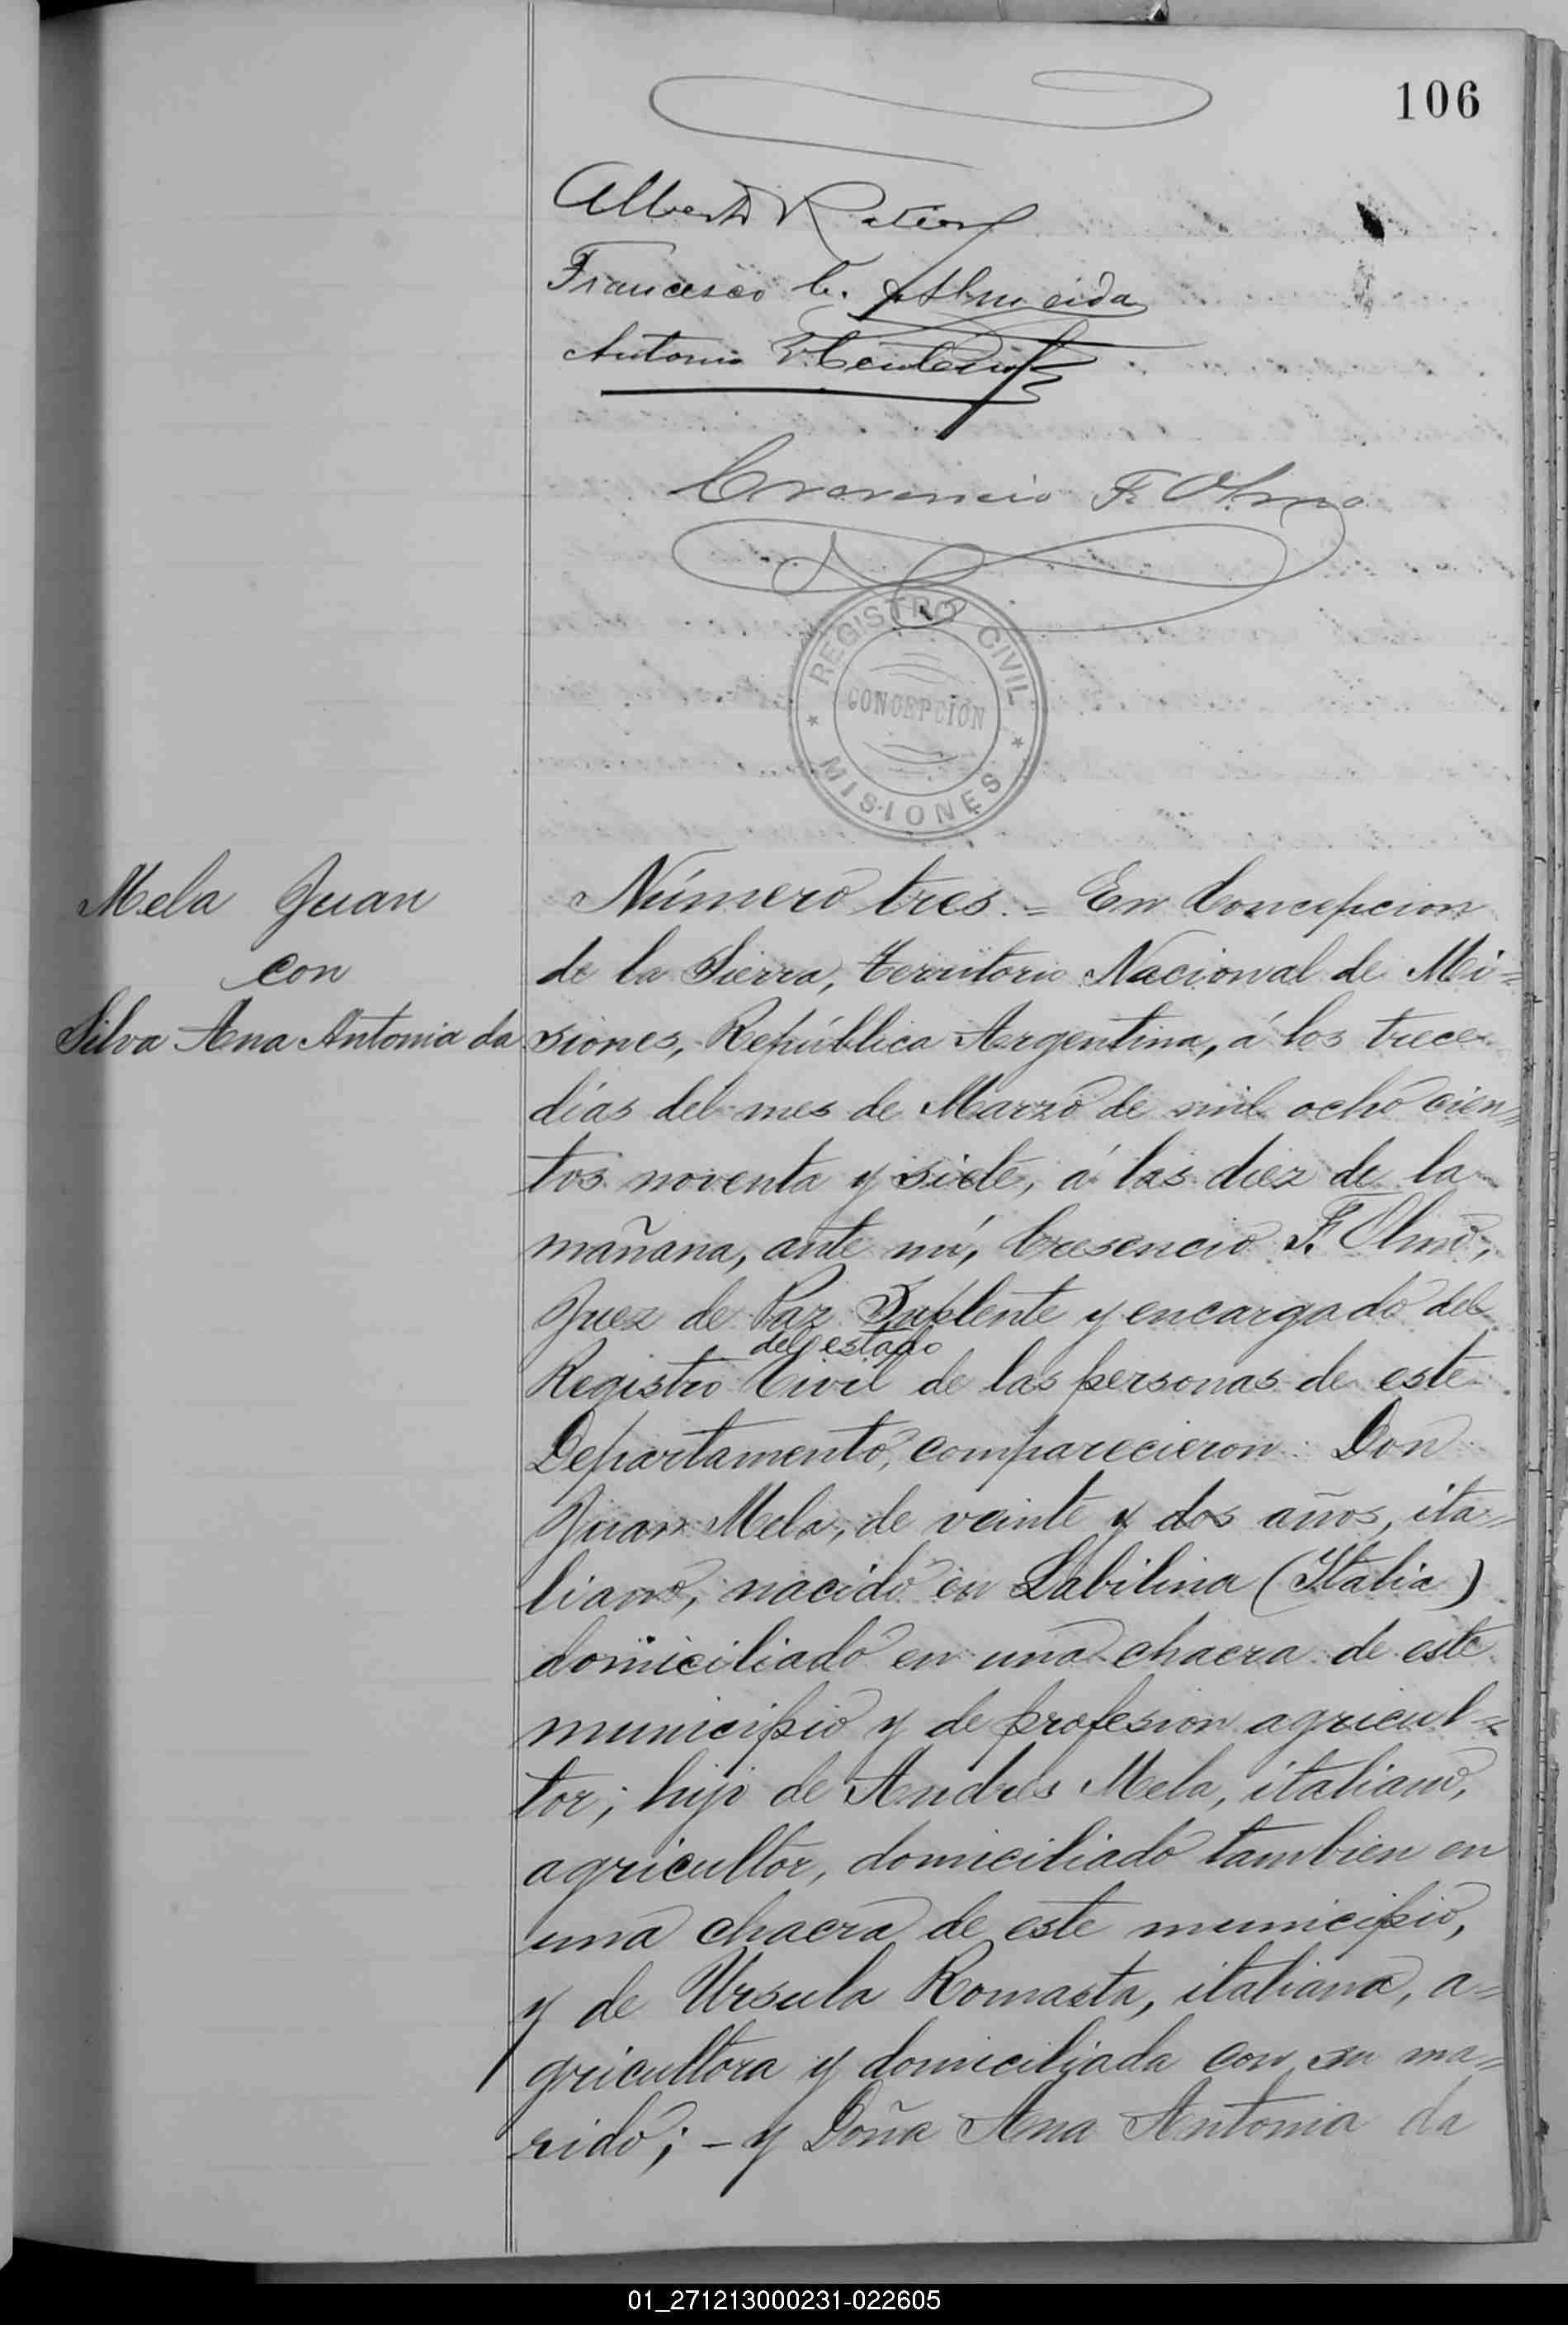 106
Alberto Ratier
Francesco C. de Almeida
Antonio
Cresencio F. Olmo
REGISTRO CIVIL
CONCEPCIÓN
MISIONES
Mela Juan
con
Silva Ana Antonia da
Número tres. = En Concepcion
de la Sierra, Territorio Nacional de Mi=
siones, República Argentina, á los trece
días del mes de Marzo de mil ocho cien=
tos noventa y siete, á las diez de la
mañana, ante mí, Cresencio F. Olmo,
Juez de Paz Suplente y encargado del
del estado
Registro Civil de las personas de este
Departamento, comparecieron: Don
Juan Mela, de veinte y dos años, ita=
liano, nacido en Labilina (Italia)
domiciliado en una chacra de este
municipio y de profesion agricul=
tor; hijo de Andres Mela, italiano,
agricultor, domiciliado tambien en
una chacra de este municipio,
y de Ursula Romasta, italiana, a=
gricultora y domiciliada con su ma=
rido; - y Doña Ana Antonia da
01_271213000231-022605